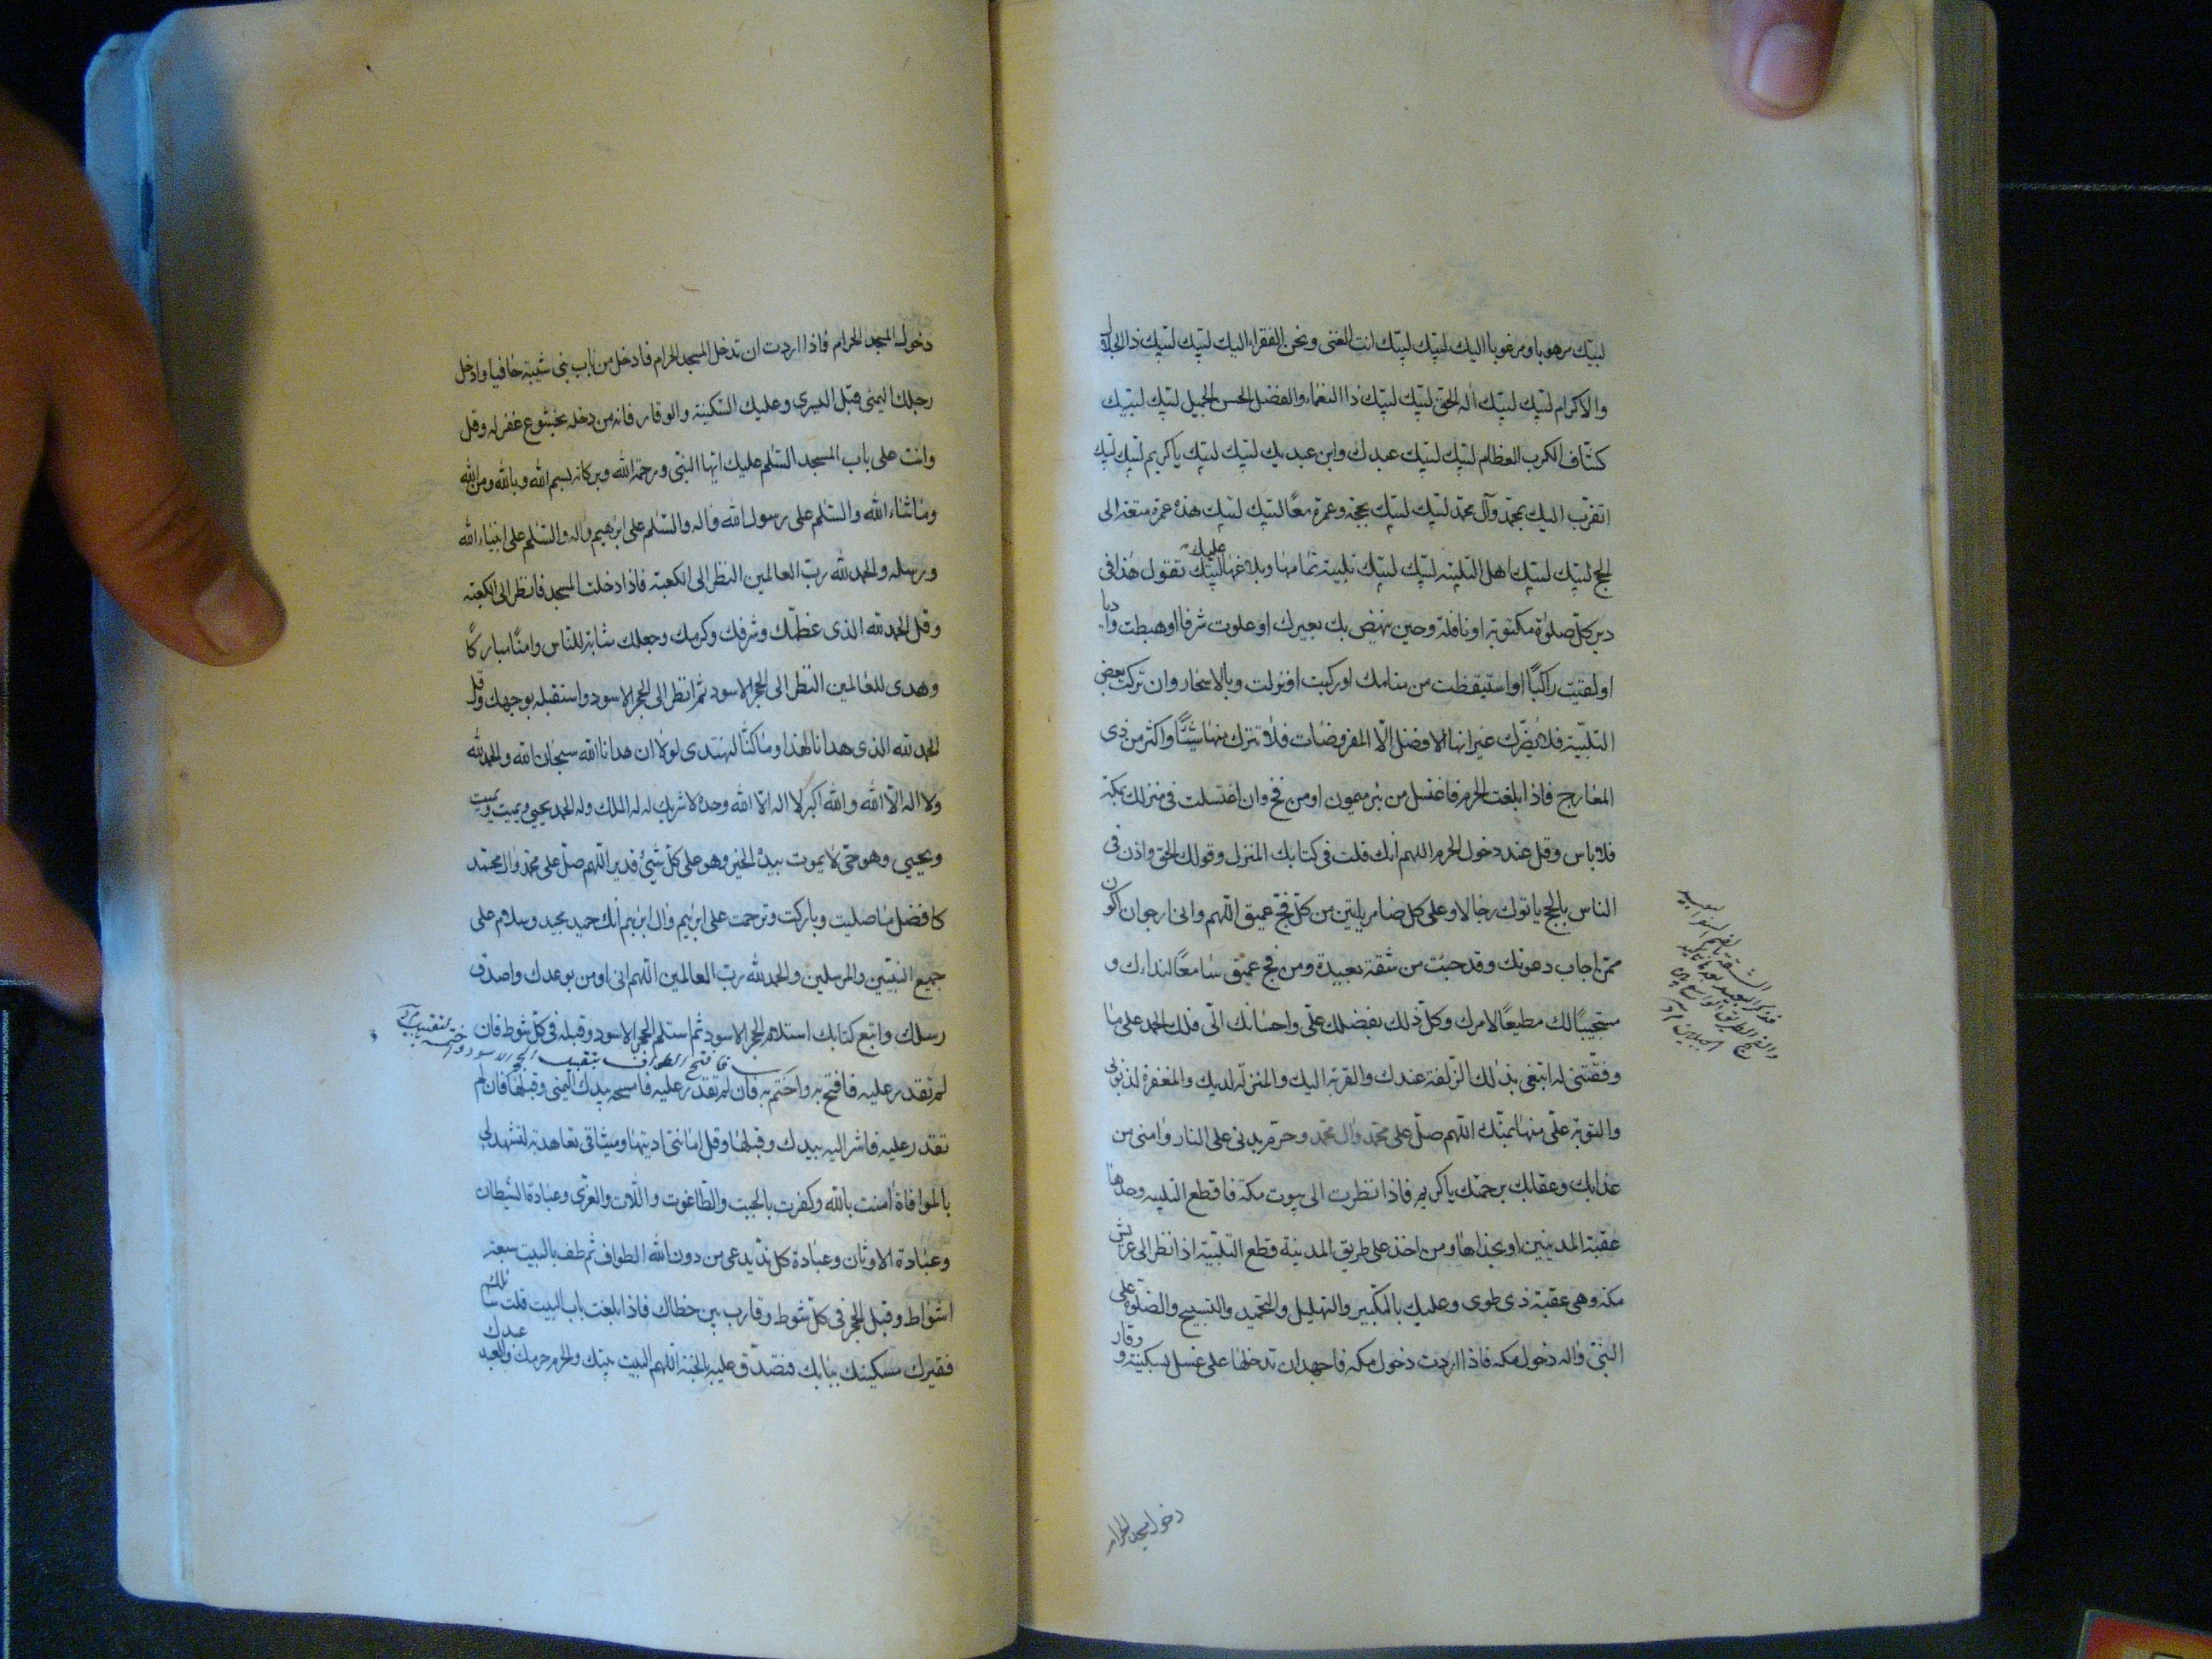 لبيك مرهوبا ومرغوبا اليك لبيك لبيك انت الغنى ونحن الفقراء اليك لبيك لبيك ذا الجلال
والاكرام لبيك لبيك اله الحق لبيك لبيك ذا النعماء والفضل الحسن الجميل لبيك لبيك
كشاف الكرب العظام لبيك لبيك عبدك وابن عبديك لبيك لبيك يا كريم لبيك لبيك
اتقرب اليك بمحمد وآل محمد لبيك لبيك بحجة وعمرة معًا لبيك لبيك هذه عمرة متعة الى
الحج لبيك لبيك اهل التلبية لبيك لبيك تلبية تمامها وبلاغها عليك لبيك تقول هذا فى
دبر كل صلوة مكتوبة او نافلة وحين ينهض بك بعيرك او علوت شرفا او هبطت واديا
او لقيت راكبًا او استيقظت من منامك او ركبت او نزلت وبالاسحار وان تركت بعض
التلبية فلا يضرك غير انها الافضل الّا المفروضات فلا تترك منها شيئًا واكثر من ذى
المعارج فاذا بلغت الحرم فاغتسل من بئر ميمون او من فخ وان اغتسلت فى منزلك بمكة
فلا باس وقل عند دخول الحرم اللهم انك قلت فى كتابك المنزل وقولك الحق واذن فى
الناس بالحج ياتوك رجالا وعلى كل ضامر ياتين من كل فج عميق اللهم وانى ارجو ان اكون
ممن اجاب دعوتك وقد جئت من شقة بعيدة ومن فج عميق سامعًا لندائك و
مستجيبًا لك مطيعًا لامرك وكل ذلك بفضلك علىّ واحسانك الىّ فلك الحمد على ما
وفقتنى له ابتغى بذلك الزلفة عندك والقربة اليك والمنزلة لديك والمغفرة لذنوبى
والتوبة علىّ منها بمنّك اللهم صل على محمد وال محمد وحرم بدنى على النار وامنى من
عذابك وعقابك برحمتك يا كريم فاذا نظرت الى بيوت مكة فاقطع التلبيه وحدها
عقبة المدنيين او بحذاها ومن اخذ على طريق المدينة قطع التلبية اذا نظر الى عريش
مكه وهى عقبة ذى طوى وعليك بالتكبير والتهليل والتحميد والتسبيح والصلوة على
النبى واله دخول مكه فاذا اردت دخول مكه فاجهد ان تدخلها على غسل بسكينة و وقار
دخول المسجد الحرام
دخول المسجد الحرام فاذا اردت ان تدخل المسجد الحرام فادخل من باب بنى شيبة حافيا وادخل
رجلك اليمنى قبل اليسرى وعليك السكينة والوقار فانه من دخله بخشوع غفر له وقل
وانت على باب المسجد السلم عليك ايها النبى ورحمة الله وبركاته بسم الله وبالله ومن الله
وما شاء الله والسلم على رسول الله واله والسلم على ابرهيم واله والسلم على انبياء الله
ورسله والحمد لله رب العالمين النظر الى الكعبة فاذا دخلت المسجد فانظر الى الكعبة
وقل الحمد لله الذى عظمك وشرفك وكرمك وجعلك مثابة للناس وامنًا مباركًا
وهدى للعالمين النظر الى الحجر الاسود ثم انظر الى الحجر الاسود واستقبله بوجهك وقل
الحمد لله الذى هدانا لهذا وما كنا لنهتدى لولا ان هدانا الله سبحان الله والحمد لله
ولا اله الّا الله والله اكبر لا اله الّا الله وحده لا شريك له له الملك وله الحمد يحيى ويميت ويميت
ويحيى وهو حى لا يموت بيده الخير وهو على كل شيئ قدير اللهم صل على محمد وال محمد
كافضل ما صليت وباركت وترحمت على ابرهيم وال ابرهيم انك حميد مجيد وسلام على
جميع النبيين والمرسلين والحمد لله رب العالمين اللهم انى اومن بوعدك واصدق
رسلك واتبع كتابك استلام الحجر الاسود ثم استلم الحجر الاسود وقبله فى كل شوط فان
لم تقدر عليه فافتح به واختم به فان لم تقدر عليه فامسحه بيدك اليمنى وقبلها فان لم
تقدر عليه فاشر اليه بيدك وقبلها وقل امانتى اديتها وميثاقى تعاهدته لتشهد لى
بالموافاة امنت بالله وكفرت بالجبت والطاغوت واللات والعزى وعبادة الشيطان
وعبادة الاوثان وعبادة كل ند يدعى من دون الله الطواف ثم طف بالبيت سبعة
اشواط وقبل الحجر فى كل شوط وقارب بين خطاك فاذا بلغت باب البيت قلت سائلك
فقيرك مسكينك ببابك فتصدق عليه بالجنة اللهم البيت بيتك والحرم حرمك والعبد عبدك